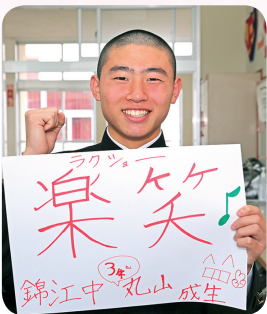 ラクショー
楽笑♪
錦江中 3年 丸山 成生